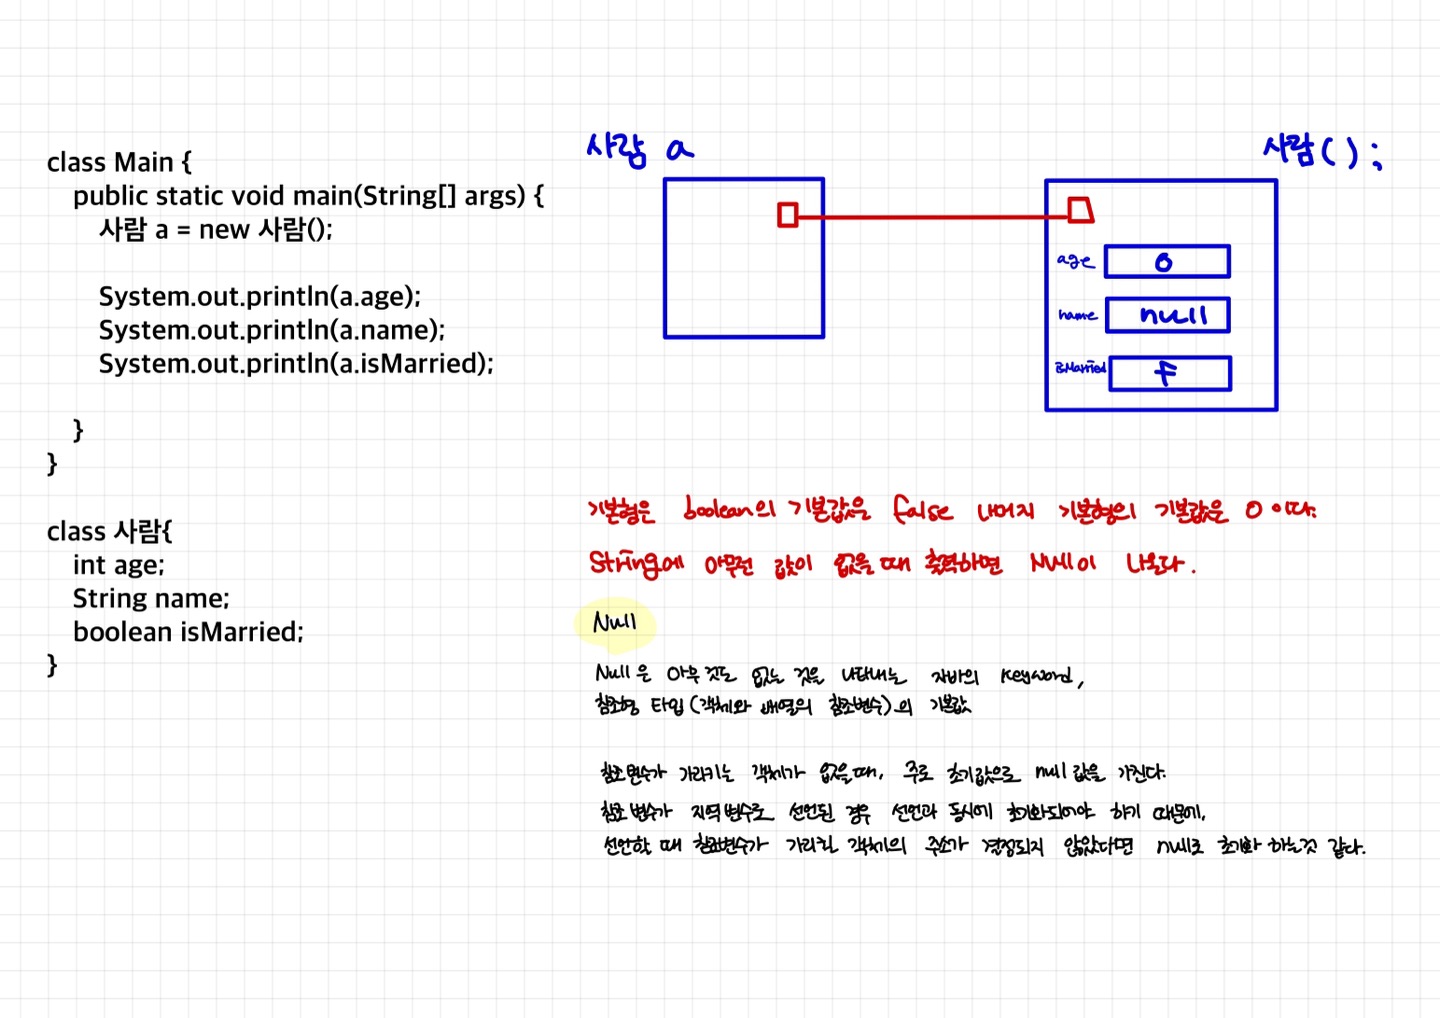 class Main {
public static void main(String[] args) {
사람 a = new 사람();
System.out.println(a.age);
System.out.println(a.name);
System.out.println(a.isMarried);
}
}
class 사람{
int age;
String name;
boolean isMarried;
}
사람 a
사람();
age 0
name null
isMarried F
기본형은 boolean의 기본값을 false 나머지 기본형의 기본값은 0 이다.
String에 아무런 값이 없을 때 출력하면 Null이 나온다.
Null
Null은 아무 것도 없는 것을 나타내는 자바의 keyword,
참조형 타입(객체와 배열의 참조변수)의 기본값
참조변수가 가리키는 객체가 없을 때, 주로 초기값으로 null 값을 가진다.
참조 변수가 지역 변수로 선언된 경우 선언과 동시에 초기화되어야 하기 때문에,
선언할 때 참조변수가 가리킬 객체의 주소가 결정되지 않았다면 null로 초기화 하는것 같다.